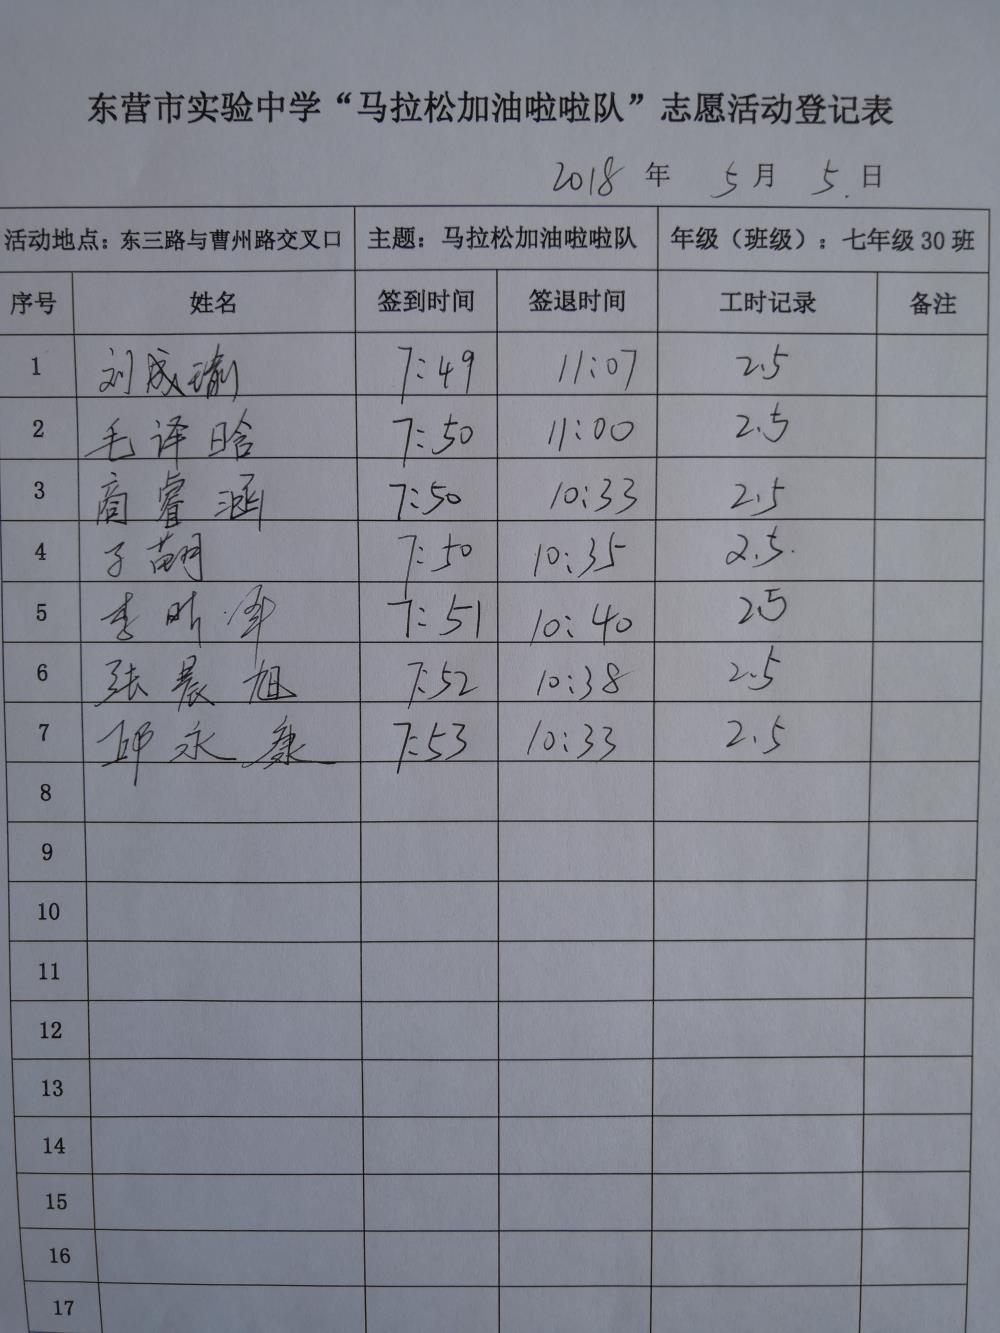 东营市实验中学“马拉松加油啦啦队”志愿活动登记表
2018 年 5 月 5 日
活动地点：东三路与曹州路交叉口 主题：马拉松加油啦啦队 年级（班级）：七年级 30 班
序号 姓名 签到时间 签退时间 工时记录 备注
1 刘成瑜 7:49 11:07 2.5
2 毛译晗 7:50 11:00 2.5
3 商睿涵 7:50 10:33 2.5
4 7:50 10:35 2.5
5 李昕 7:51 10:40 2.5
6 张晨旭 7:52 10:38 2.5
7 邱永康 7:53 10:33 2.5
8
9
10
11
12
13
14
15
16
17